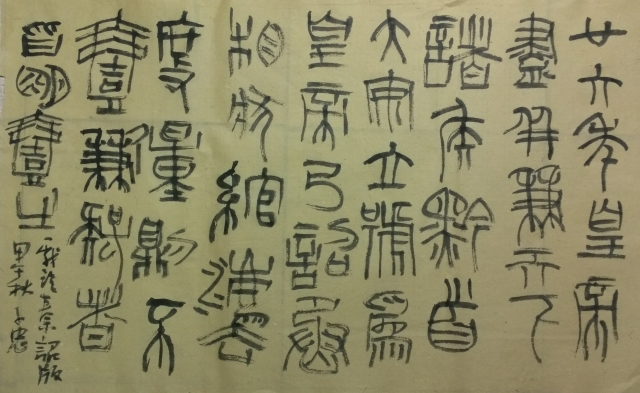 廿六年皇帝
盡并兼天下
諸侯黔首
大安立號為
皇帝乃詔丞
相狀綰灋
度量則不
壹歉疑者
皆明壹之
詔版
甲午秋